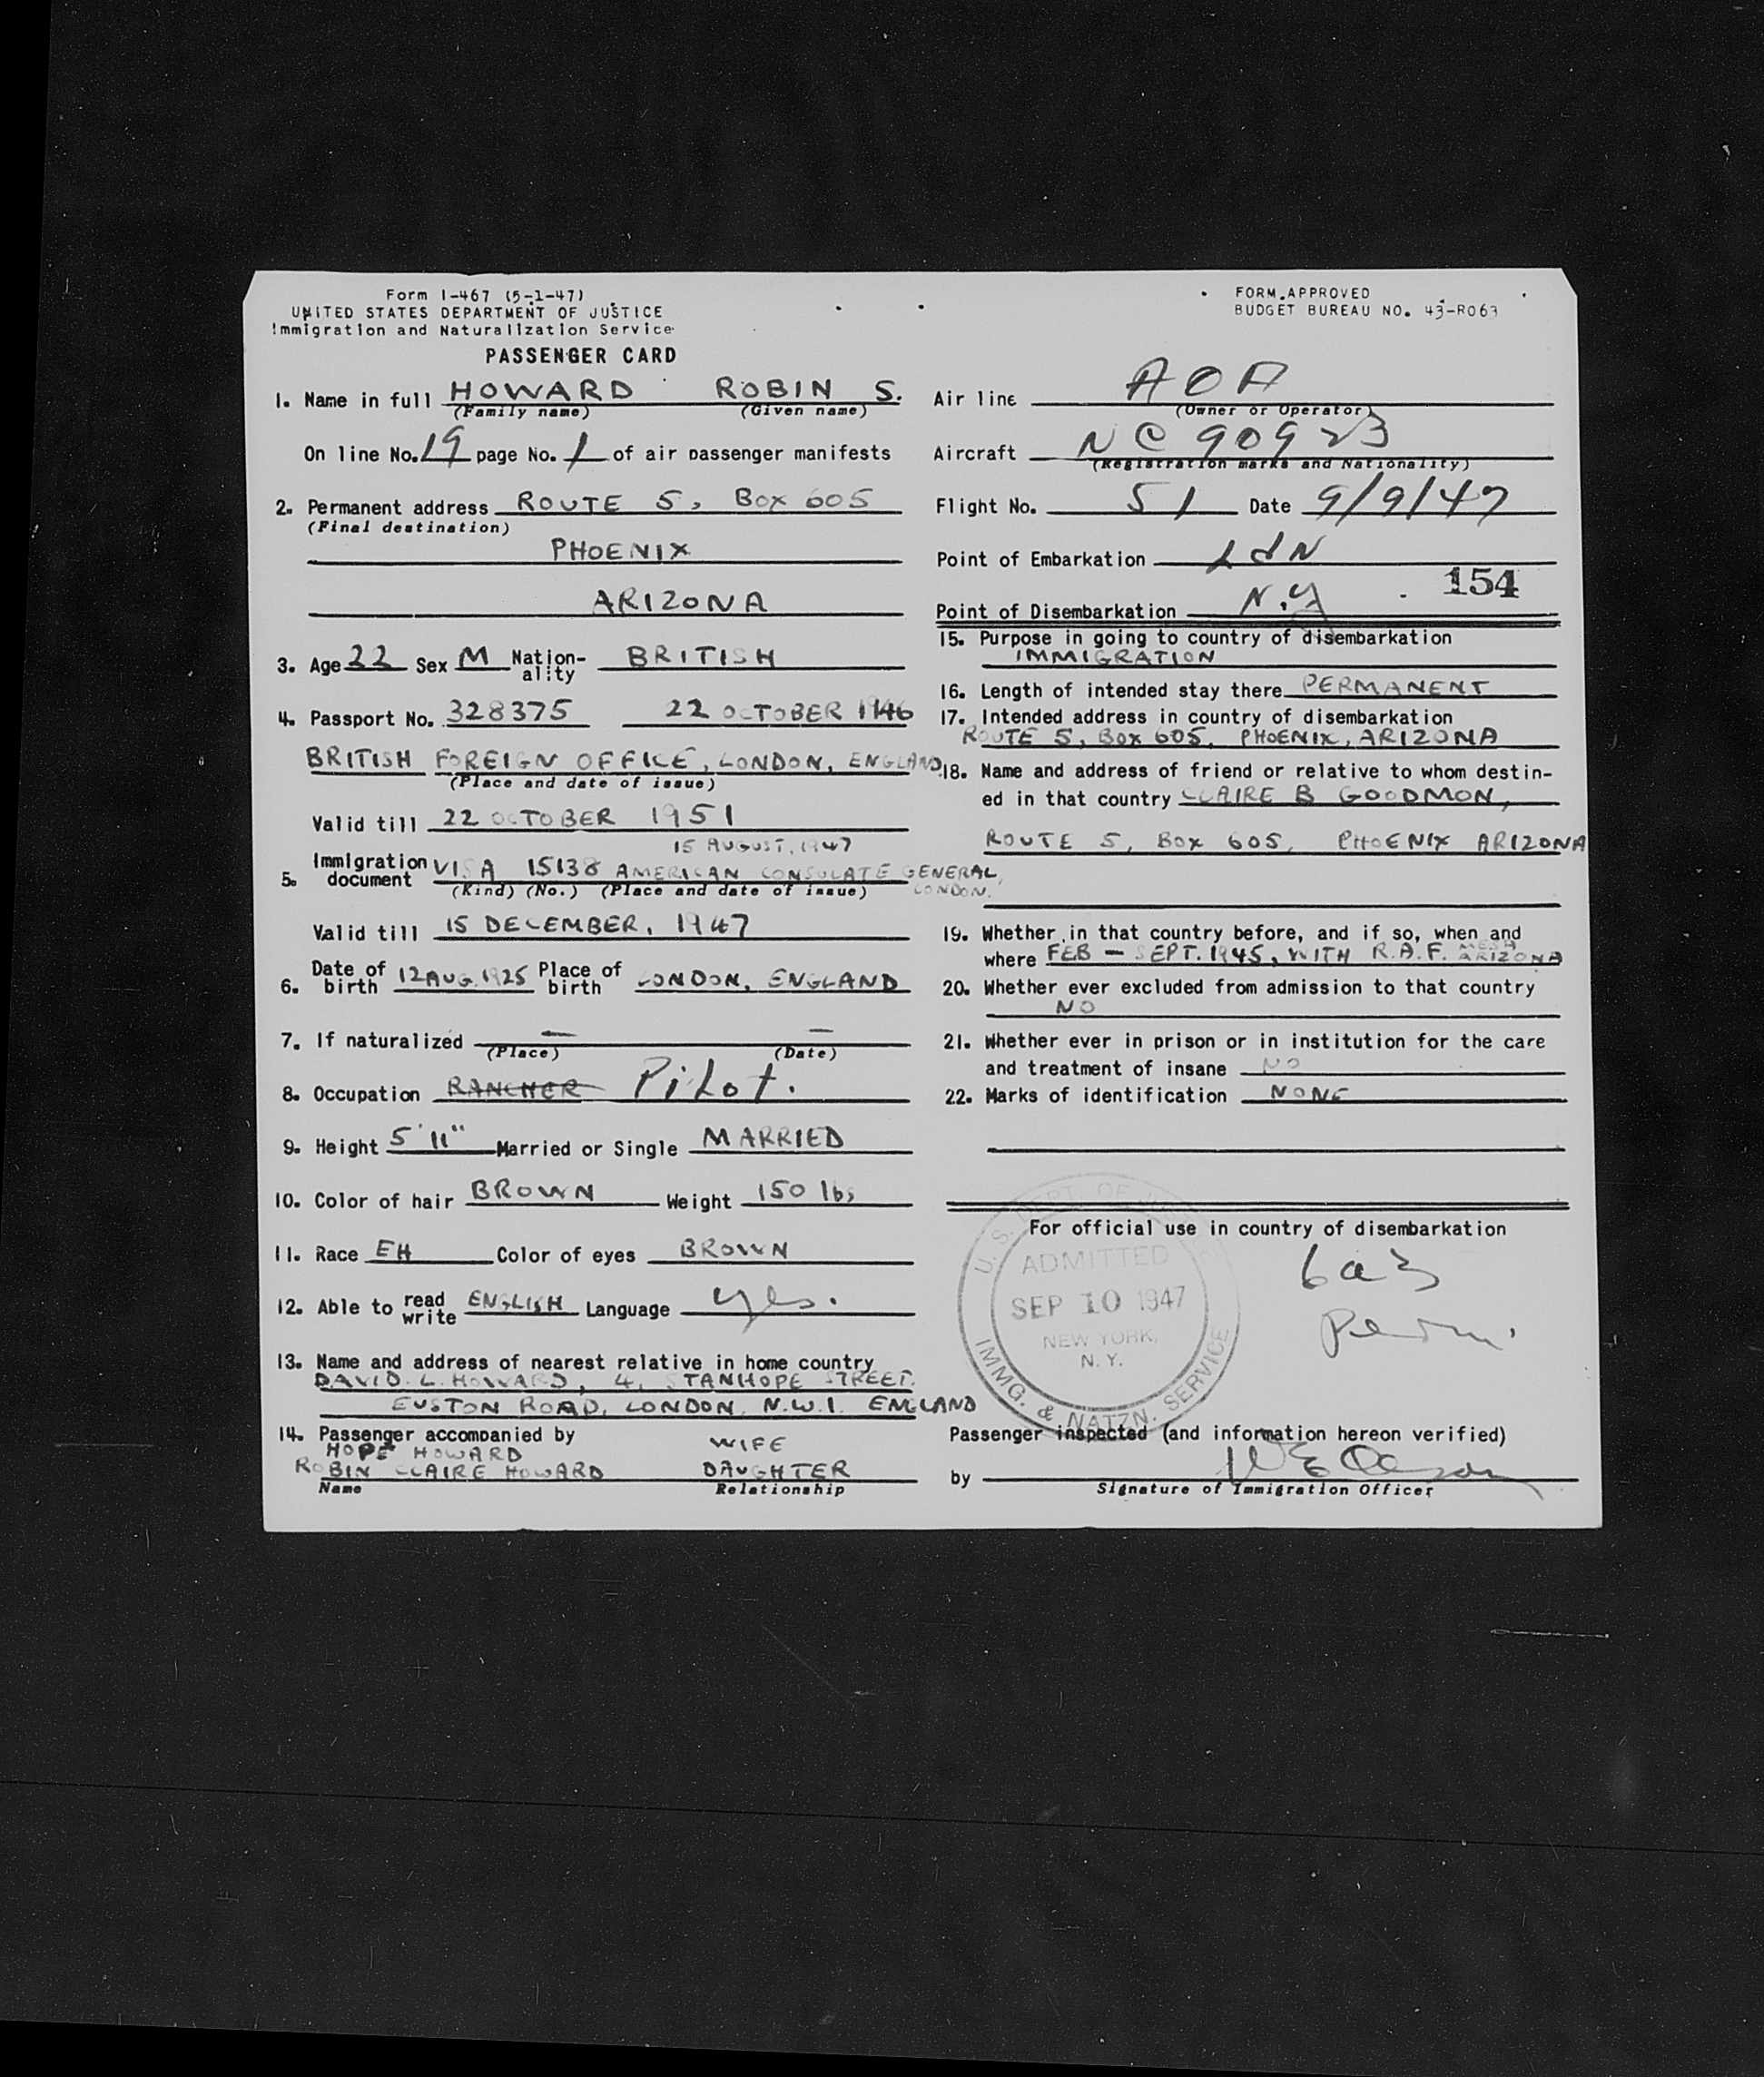 Form I-467 (5-1-47)
UNITED STATES DEPARTMENT OF JUSTICE
Immigration and Naturalization Service
PASSENGER CARD
1. Name in full HOWARD ROBIN S.
(Family name) (Given name)
On line No. 19 page No. 1 of air passenger manifests
2. Permanent address ROUTE 5, BOX 605
(Final destination)
PHOENIX
ARIZONA
3. Age 22 Sex M Nation-ality BRITISH
4. Passport No. 328375 22 OCTOBER 1946
BRITISH FOREIGN OFFICE, LONDON, ENGLAND
(Place and date of issue)
Valid till 22 OCTOBER 1951
15 AUGUST, 1947
5. Immigration document VISA 15138 AMERICAN CONSULATE GENERAL,
(Kind) (No.) (Place and date of issue) LONDON.
Valid till 15 DECEMBER, 1947
6. Date of birth 12 AUG. 1925 Place of birth LONDON, ENGLAND
7. If naturalized — —
(Place) (Date)
8. Occupation RANCHER PiLot.
9. Height 5'11" Married or Single MARRIED
10. Color of hair BROWN Weight 150 lbs
11. Race EH Color of eyes BROWN
12. Able to read write ENGLISH Language yes.
13. Name and address of nearest relative in home country
DAVID. L. HOWARD, 4, STANHOPE STREET.
EUSTON ROAD, LONDON, N.W.1. ENGLAND
14. Passenger accompanied by
HOPE HOWARD WIFE
ROBIN CLAIRE HOWARD DAUGHTER
Name Relationship
FORM APPROVED
BUDGET BUREAU NO. 43-R063
Air line AOA
(Owner or Operator)
Aircraft NC 90923
(Registration marks and Nationality)
Flight No. 51 Date 9/9/47
Point of Embarkation LdN
154
Point of Disembarkation N.Y
15. Purpose in going to country of disembarkation
IMMIGRATION
16. Length of intended stay there PERMANENT
17. Intended address in country of disembarkation
ROUTE 5, BOX 605, PHOENIX, ARIZONA
18. Name and address of friend or relative to whom destin-
ed in that country CLAIRE B GOODMON,
ROUTE 5, BOX 605, PHOENIX ARIZONA
19. Whether in that country before, and if so, when and
where FEB — SEPT. 1945, WITH R.A.F. MESA ARIZONA
20. Whether ever excluded from admission to that country
NO
21. Whether ever in prison or in institution for the care
and treatment of insane NO
22. Marks of identification NONE
For official use in country of disembarkation
U. S. DEPT. OF
ADMITTED
SEP 10 1947
NEW YORK,
N. Y.
IMMG. & NATZN. SERVICE
6a3
Passenger inspected (and information hereon verified)
by
Signature of Immigration Officer